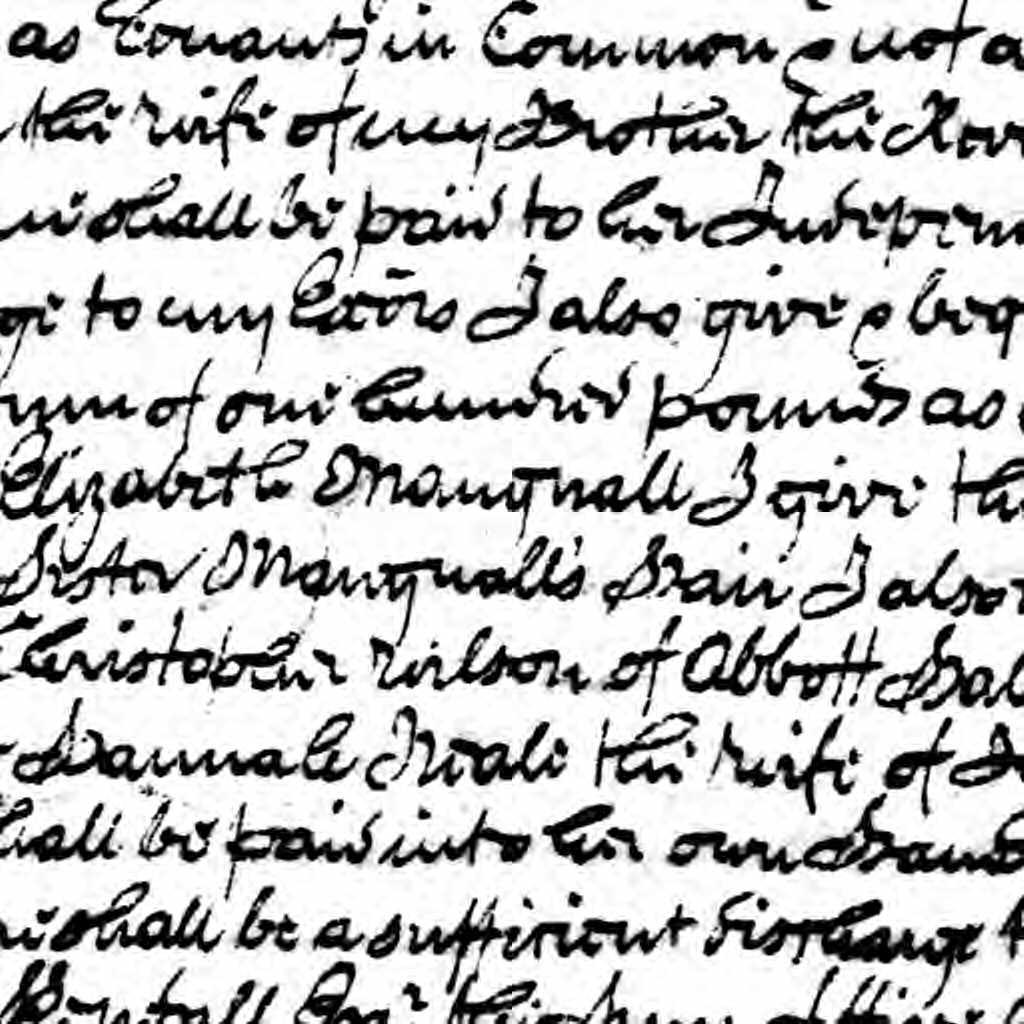 as Tenants in Common & not a
the wife of my Brother the Rev
me shall be paid to her Indepen
ge to my Exōrs I also give & beq
sum of one hundred pounds as
Elizabeth Mangnall I give the
Sister Mangnall's Hair I also
Christopher Wilson of Abbott Hal
Hannah Neale the wife of
shall be paid into her own Hand
me shall be a sufficient discharge
Esqr. the sum of five